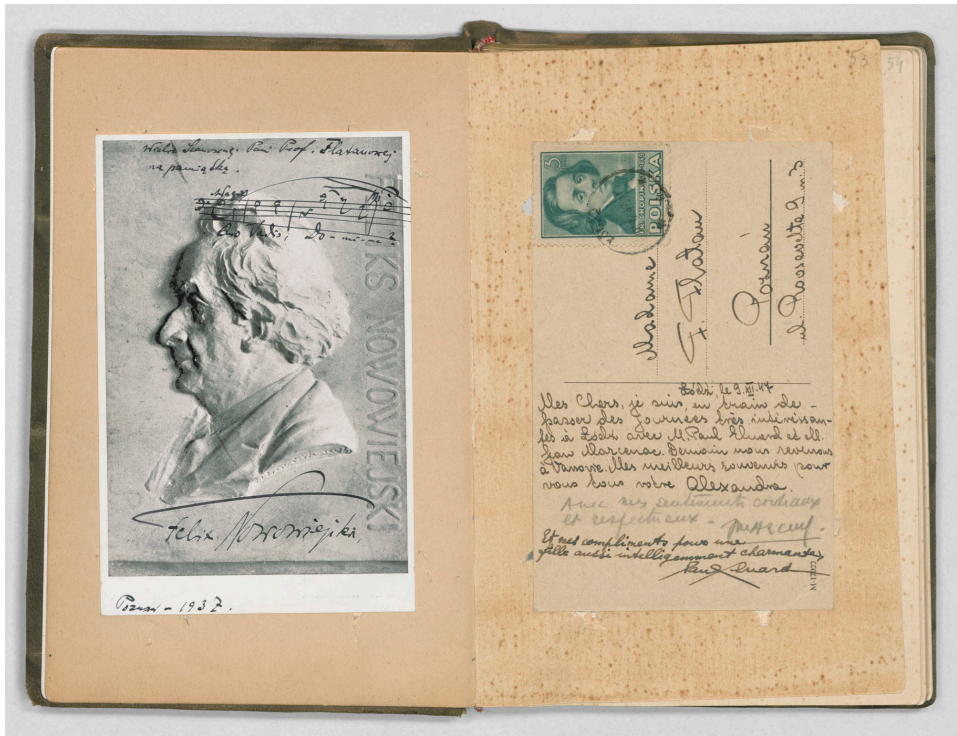 Wielce Szanownej Pani Prof. Flatauowej
na pamiątkę.
Quo Vadis, Do - mi - ne?
FELIKS NOWOWIEJSKI
Felix Nowowiejski.
Poznań - 1937.
53
54
5
FR. CHOPIN
POLSKA
Madame
F. Flatau
Poznań
ul. Roosevelta 9 m 3
Łódź, le 9.XI.47
Mes Chers, je suis en train de
passer des journées très intéressan-
tes à Łódź avec M. Paul Eluard et M.
Jean Marcenac. Demain nous revenons
à Varsovie. Mes meilleurs souvenirs pour
vous tous votre Alexandra.
Avec mes sentiments cordiaux
et respectueux -
Et mes compliments pour une
fille aussi intelligemment charmante,
Paul Eluard